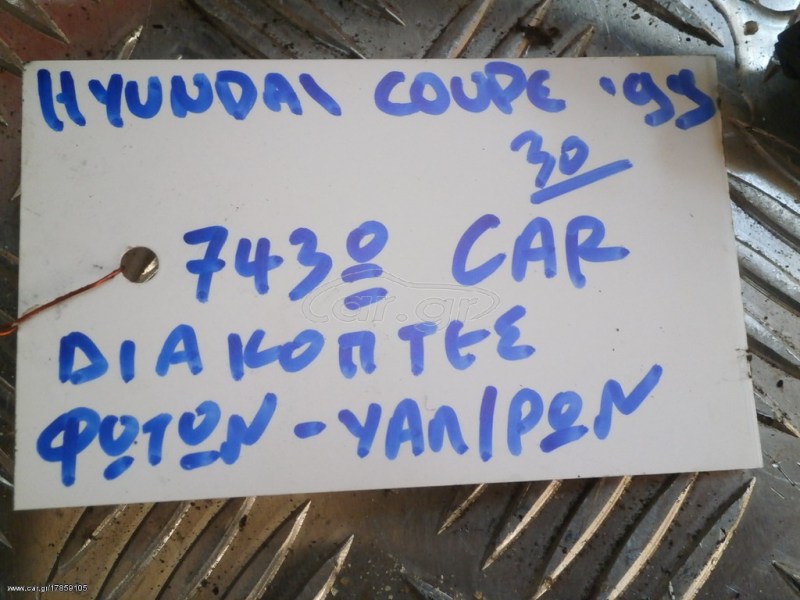 HYUNDAI COUPE '99
30
7430 CAR
car.gr
ΔΙΑΚΟΠΤΕΣ
ΦΩΤΩΝ - ΥΑΛ/ΡΩΝ
www.car.gr/17859105